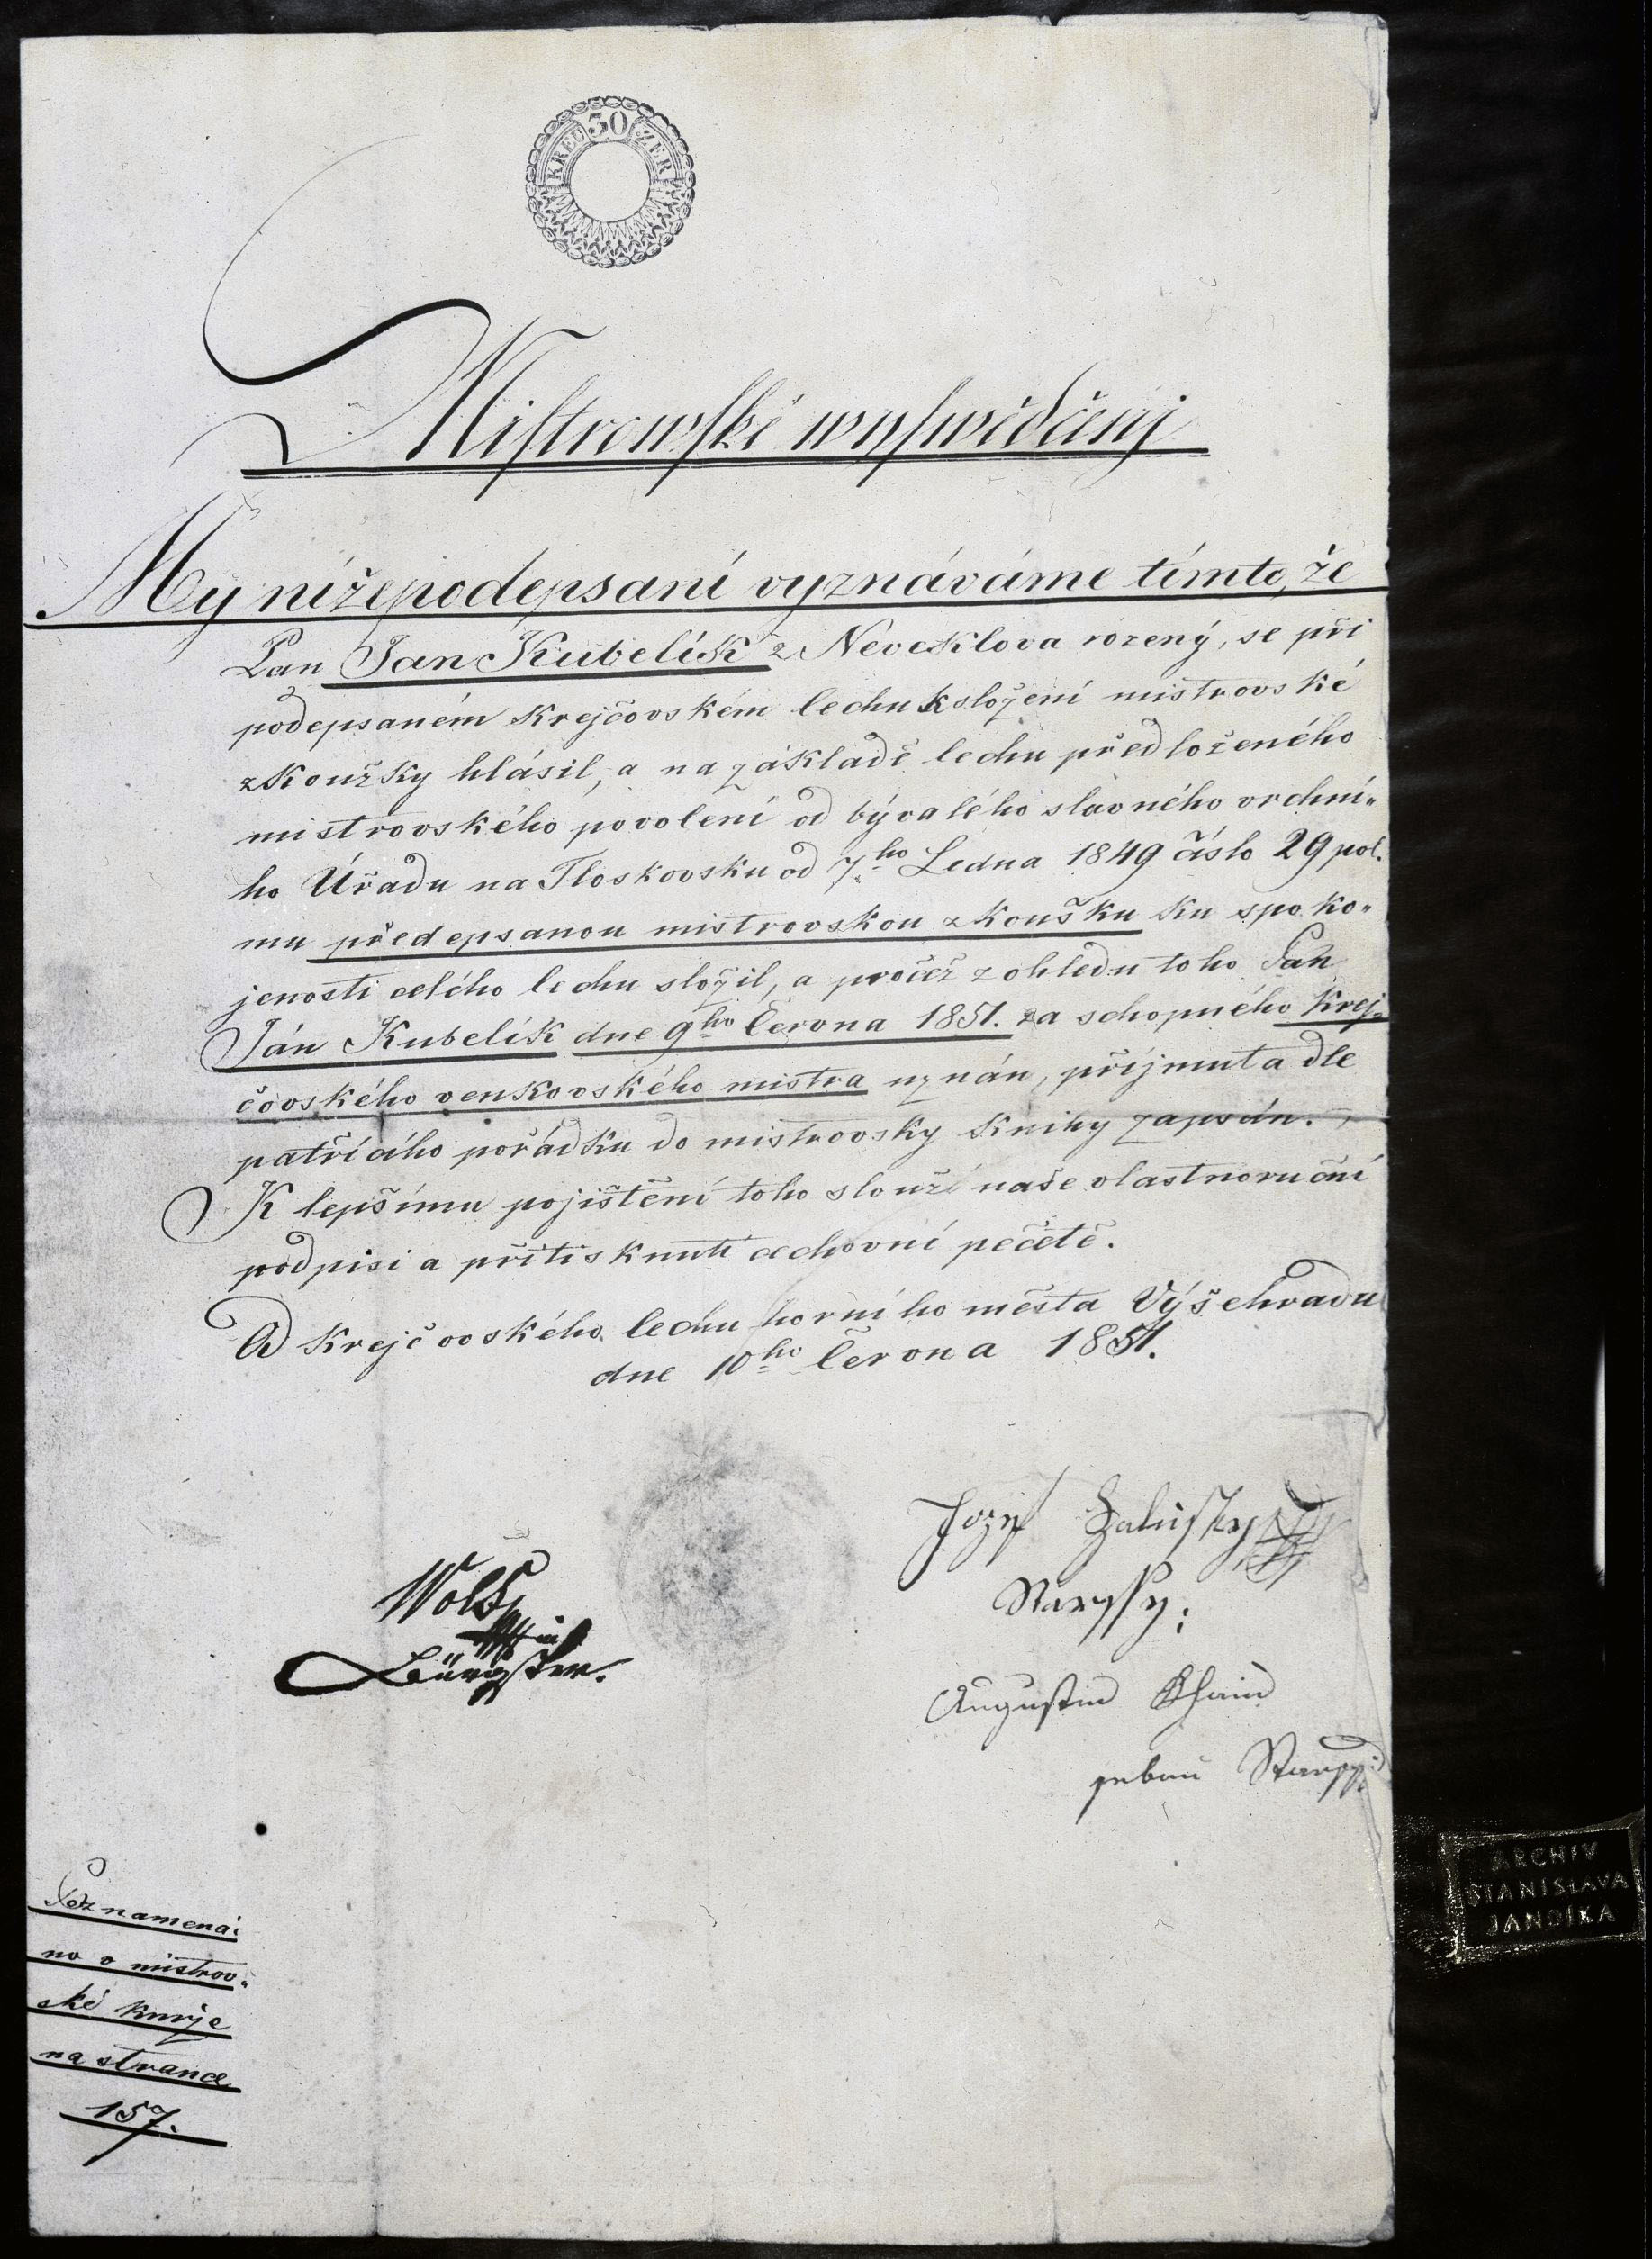 30
KREUZER
Mistrowské wyswědčenj
My nížepodepsaní vyznáváme tímto, že
Pan Jan Kubelík z Neveklova rozený, se při
podepsaném Krejčovském Cechu k složení mistrovské
zkoužky hlásil, a na základě Cechu předloženého
mistrovského povolení od bývalého slavného vrchní„
ho Úřadu na Tloskovsku od 7ho Ledna 1849 číslo 29 pol.
mu předepsanou mistrovskou zkoušku ku spoko„
jenosti celého Cechu složil, a pročež z ohledu toho Pan
Ján Kubelík dne 9ho Června 1851. za schopného Krej„
čovského venkovského mistra uznán, příjmut a dle
patřícího pořádku do mistrovsky Knihy zapsán.
K lepšímu pojištění toho slouží naše vlastnoruční
podpisi a přitisknutí cechovní pečetě.
Od Krejčovského Cechu horního města Výšehradu
dne 10ho Června 1851.
Jozef
Starssy:
Augustin
Starssy
Poznamená„
no v mistrov„
ské knize
na strance
157.
ARCHIV
STANISLAVA
JANDÍKA